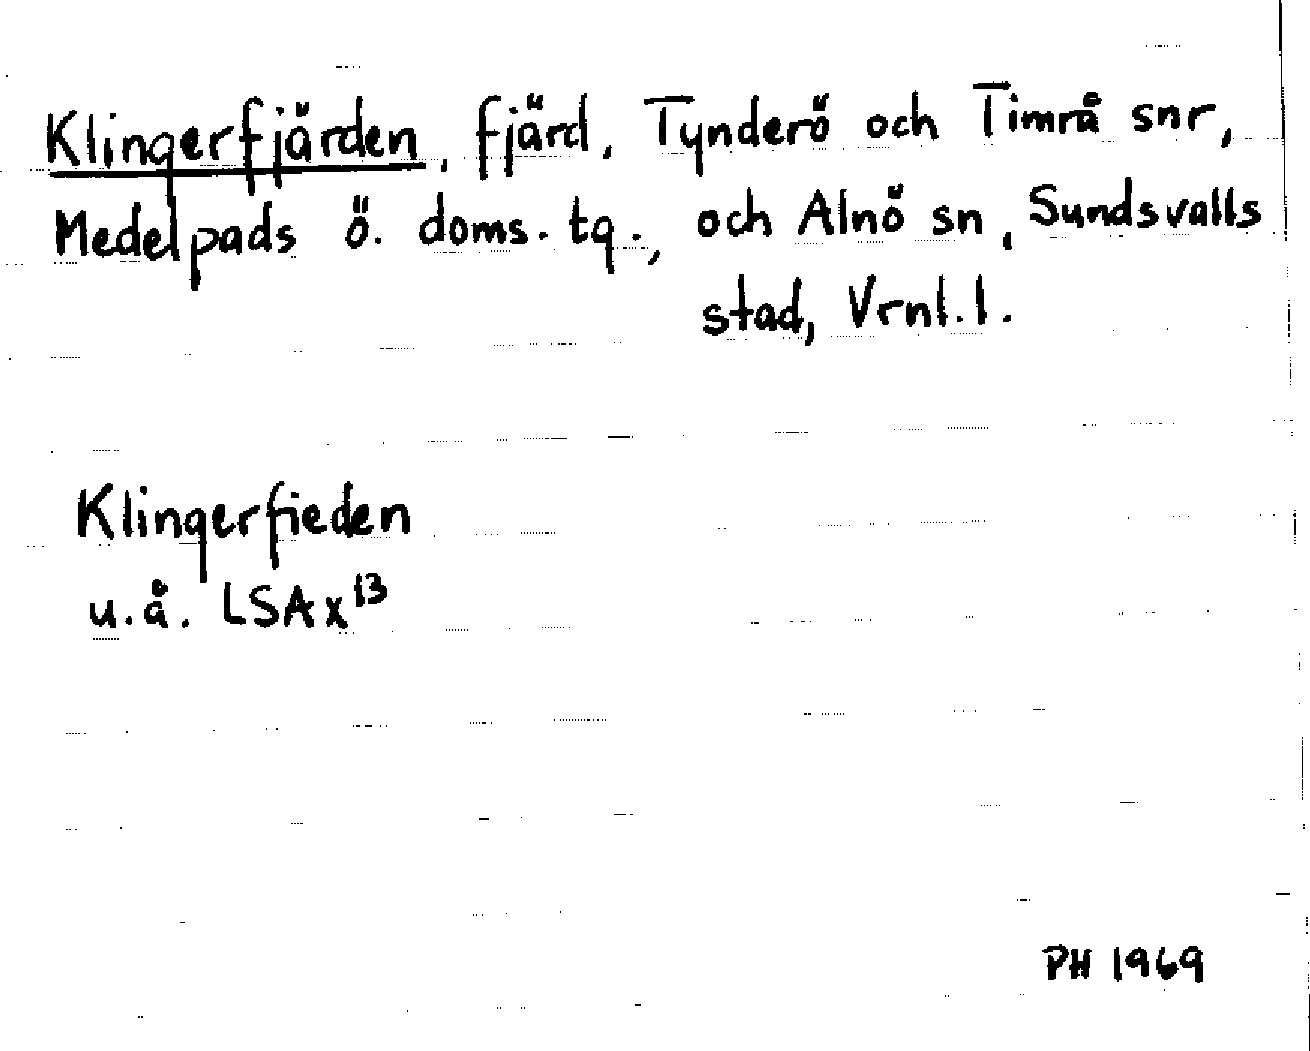 Klingerfjärden, fjärd, Tynderö och Timrå snr,
Medelpads ö. doms. tg., och Alnö sn, Sundsvalls
stad, Vrnl. l.
Klingerfieden
u.å. LSA X¹³
PH 1969